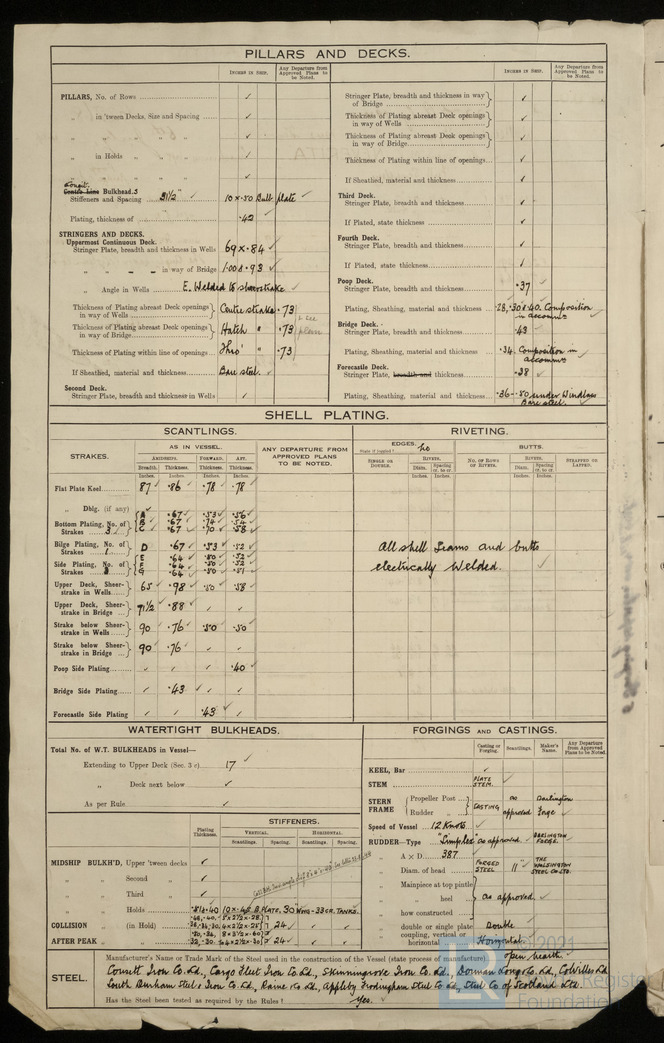 PILLARS AND DECKS.
INCHES IN SHIP.
Any Departure from Approved Plans to be Noted.
PILLARS, No. of Rows ✓
„ in 'tween Decks, Size and Spacing ✓
„ „ „ „ ✓
„ in Holds ✓
„ „ ✓
Longit.
Centre Line Bulkhead.s
Stiffeners and Spacing 31½" 10 x .50 Bulb plate ✓
Plating, thickness of .42
STRINGERS AND DECKS.
Uppermost Continuous Deck.
Stringer Plate, breadth and thickness in Wells 69 x .84 ✓
„ „ „ „ in way of Bridge
„ Angle in Wells E. Welded to sheerstrake ✓
Thickness of Plating abreast Deck openings in way of Wells Centre strake .73
Thickness of Plating abreast Deck openings in way of Bridge Hatch " .73
Thickness of Plating within line of openings Thro' " .73
see plan
If Sheathed, material and thickness Bare steel. ✓
Second Deck.
Stringer Plate, breadth and thickness in Wells ✓
INCHES IN SHIP.
Any Departure from Approved Plans to be Noted.
Stringer Plate, breadth and thickness in way of Bridge ✓
Thickness of Plating abreast Deck openings in way of Wells ✓
Thickness of Plating abreast Deck openings in way of Bridge ✓
Thickness of Plating within line of openings ✓
If Sheathed, material and thickness ✓
Third Deck.
Stringer Plate, breadth and thickness ✓
If Plated, state thickness ✓
Fourth Deck.
Stringer Plate, breadth and thickness ✓
If Plated, state thickness ✓
Poop Deck.
Stringer Plate, breadth and thickness .37
Plating, Sheathing, material and thickness .28, .30 & .40. Composition in accomms ✓
Bridge Deck.
Stringer Plate, breadth and thickness .43
Plating, Sheathing, material and thickness .34. Composition in accomms
Forecastle Deck.
Stringer Plate, breadth and thickness .38 ✓
Plating, Sheathing, material and thickness .36 - .50 under Windlass
Bare steel. ✓
SHELL PLATING.
SCANTLINGS.
RIVETING.
STRAKES.
AS IN VESSEL.
AMIDSHIPS. FORWARD. AFT.
Breadth. Thickness. Thickness. Thickness.
Inches. Inches. Inches. Inches.
ANY DEPARTURE FROM APPROVED PLANS TO BE NOTED.
EDGES. No
State if joggled?
SINGLE OR DOUBLE.
RIVETS.
Diam. Spacing cr. to cr.
Inches. Inches.
BUTTS.
NO. OF ROWS OF RIVETS.
RIVETS.
Diam. Spacing cr. to cr.
Inches. Inches.
STRAPPED OR LAPPED.
Flat Plate Keel 87 ✓ .86 ✓ .78 ✓ .78 ✓
„ Dblg. (if any) ✓
Bottom Plating, No. of Strakes 3
A .67 ✓ .53 ✓ .56 ✓
B .67 ✓ .74 ✓ .54 ✓
C .67 ✓ .70 ✓ .58 ✓
Bilge Plating, No. of Strakes 1 D .67 ✓ .53 ✓ .52 ✓
Side Plating, No. of Strakes
E .64 ✓ .50 ✓ .52 ✓
F .64 ✓ .50 ✓ .52 ✓
G .64 ✓ .50 ✓ .51 ✓
Upper Deck, Sheer-strake in Wells 65 ✓ .98 ✓ .50 ✓ .58 ✓
Upper Deck, Sheer-strake in Bridge 71½ ✓ .88 ✓ ✓ ✓
Strake below Sheer-strake in Wells 90 ✓ .76 ✓ .50 ✓ .50 ✓
Strake below Sheer-strake in Bridge 90 ✓ .76 ✓ ✓ ✓
Poop Side Plating ✓ ✓ ✓ .40 ✓
Bridge Side Plating ✓ .43 ✓ ✓ ✓
Forecastle Side Plating ✓ ✓ .43 ✓ ✓
All shell seams and butts
electrically welded. ✓
WATERTIGHT BULKHEADS.
Total No. of W.T. BULKHEADS in Vessel—
Extending to Upper Deck (Sec. 3 c) 17 ✓
„ Deck next below ✓
As per Rule ✓
Plating Thickness.
STIFFENERS.
VERTICAL. HORIZONTAL.
Scantlings. Spacing. Scantlings. Spacing.
MIDSHIP BULKH'D, Upper 'tween decks ✓
„ „ Second „ ✓
„ „ Third „ ✓
„ „ Holds
COLLISION „ (in Hold)
AFTER PEAK „ „
FORGINGS AND CASTINGS.
Casting or Forging. Scantlings. Maker's Name. Any Departure from Approved Plans to be Noted.
KEEL, Bar ✓
STEM PLATE STEM. ✓
STERN FRAME Propeller Post
Rudder „
CASTING as approved Darlington Forge.
Speed of Vessel 12 Knots
RUDDER—Type "Simplex" as approved. ✓ DARLINGTON FORGE.
„ A x D 387.
„ Diam. of head FORGED STEEL 11" ✓ THE WOLSINGHAM STEEL CO LTD.
„ Mainpiece at top pintle
„ „ heel as approved. ✓
„ how constructed
„ double or single plate Double
„ coupling, vertical or horizontal Horizontal
STEEL.
Manufacturer's Name or Trade Mark of the Steel used in the construction of the Vessel (state process of manufacture). Open hearth
Consett Iron Co. Ld., Cargo Fleet Iron Co. Ld., Skinningrove Iron Co. Ld., Dorman Long & Co. Ld., Colvilles Ld.
South Durham Steel & Iron Co. Ld., Raine & Co. Ld., Appleby Frodingham Steel Co. Ld., Steel Co. of Scotland Ltd.
Has the Steel been tested as required by the Rules? Yes.
LR
© 2021
Lloyd's Register
Foundation